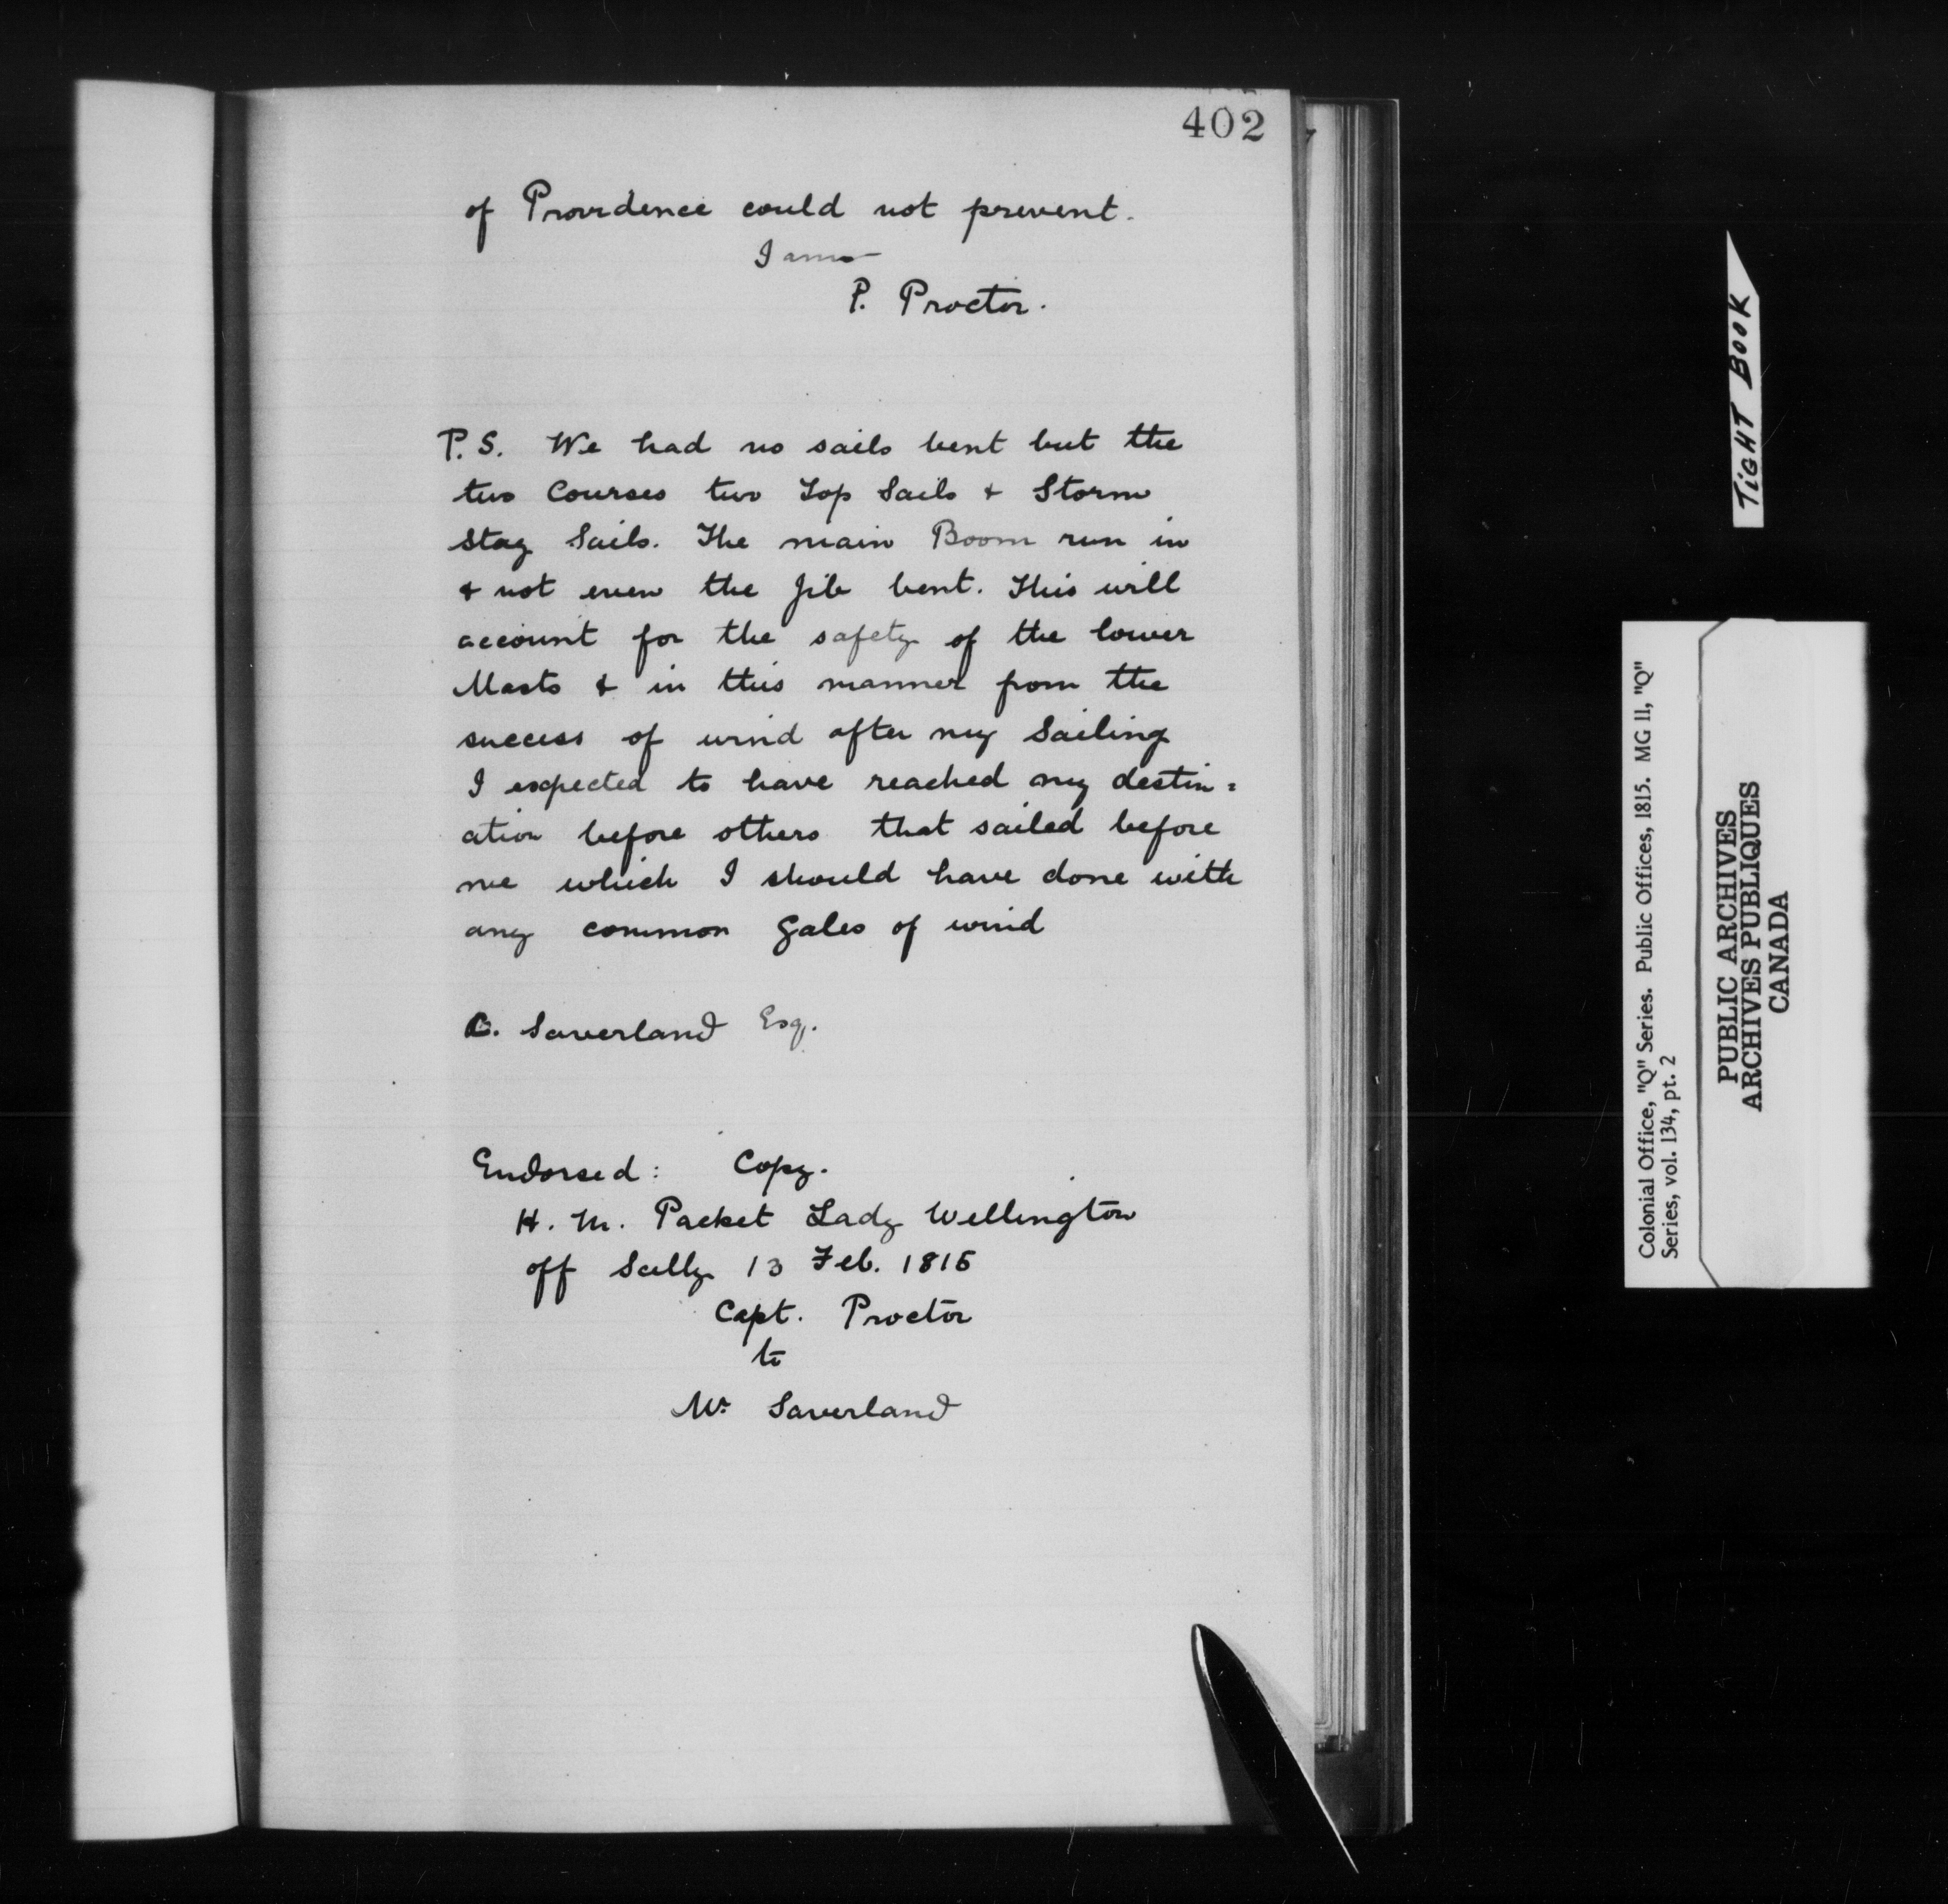 402
of Providence could not prevent.
I am
P. Proctor.
P. S. We had no sails bent but the
two Courses two Top Sails & Storm
Stay Sails. The main Boom run in
& not even the Jib bent. This will
account for the safety of the lower
Masts & in this manner from the
success of wind after my Sailing
I expected to have reached my destin=
ation before others that sailed before
me which I should have done with
any common gales of wind
C. Saverland Esq.
Endorsed: Copy.
H. M. Packet Lady Wellington
off Scilly 13 Feb. 1815
Capt. Proctor
to
Mr Saverland
TIGHT BOOK
Colonial Office, "Q" Series. Public Offices, 1815. MG 11, "Q"
Series, vol. 134, pt. 2
PUBLIC ARCHIVES
ARCHIVES PUBLIQUES
CANADA